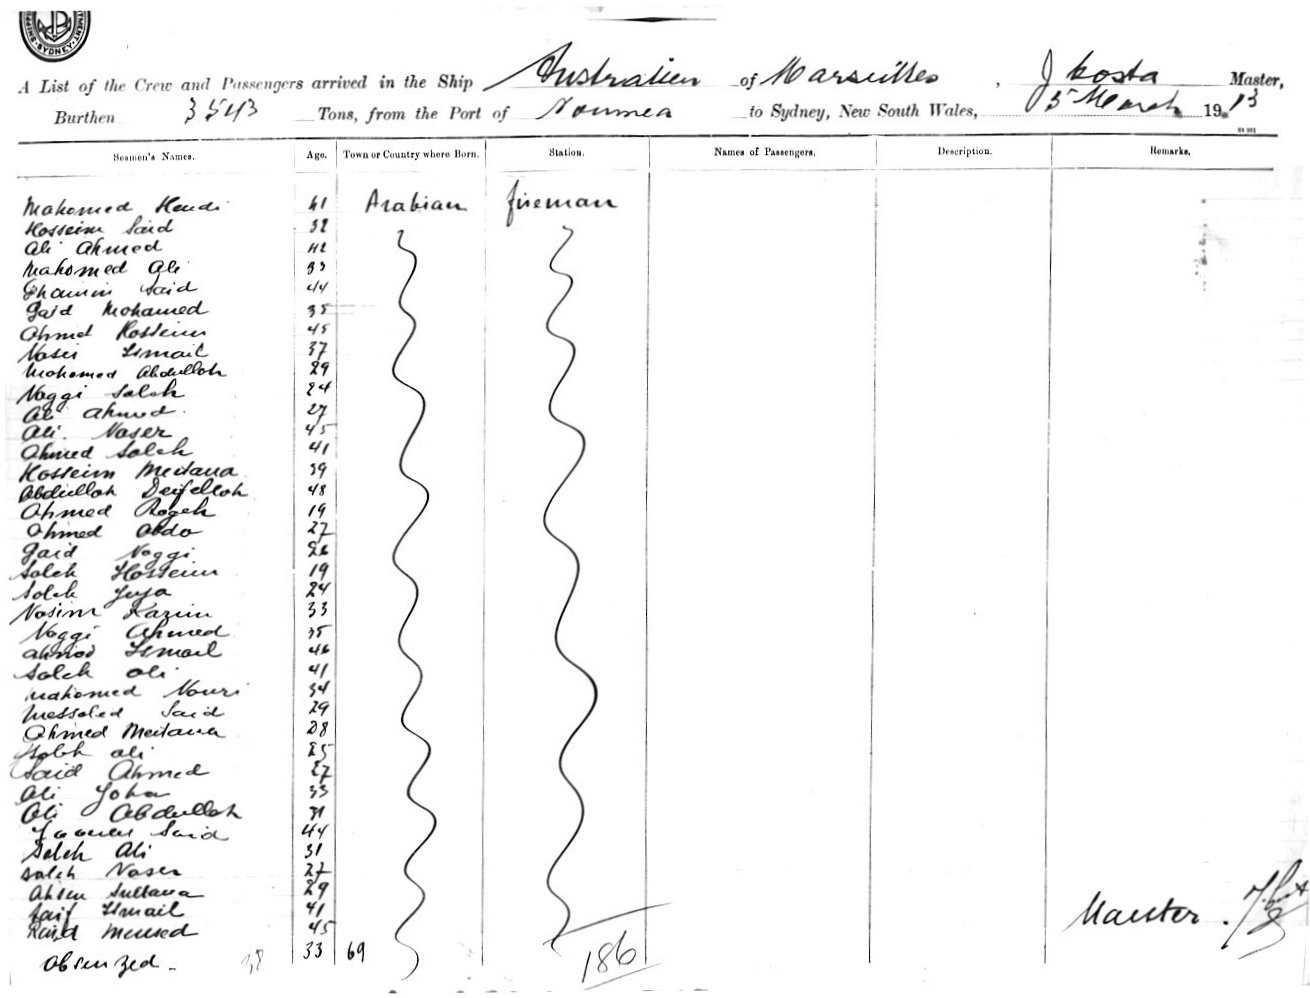 SYDNEY
A List of the Crew and Passengers arrived in the Ship Australien of Marseilles, J Costa Master,
Burthen 3543 Tons, from the Port of Noumea to Sydney, New South Wales, 5 March 1913
Seamen's Names. Age. Town or Country where Born. Station. Names of Passengers. Description. Remarks.
Mahomed Hendi 41 Arabian fireman
Hosseim Said 32
Ali Ahmed 42
Mahomed Ali 33
Said 44
Gaid Mohamed 35
Ahmed Hosseim 45
Naser Ismail 37
Mohamed Abdullah 29
Naggi Saleh 24
Ali Ahmed 27
Ali Naser 45
Ahmed Saleh 41
Hosseim Meitana 39
Abdullah Deifellah 48
Ahmed Rogeh 19
Ahmed Abdo 27
Gaid Naggi
Saleh Hosseim 19
Saleh 24
Nasim Kazim 33
Naggi Ahmed 35
Ahmed Ismail 46
Saleh Ali 41
Mahomed Nouri 34
Messaled Said 29
Ahmed Meitana 28
Saleh Ali 25
Said Ahmed 27
Ali Joha 33
Ali Abdullah 31
Said 44
Saleh Ali 31
Saleh Naser 27
Ahsen Sultana 29
Saif Ismail 41
Mersed 45
33 69
186
38